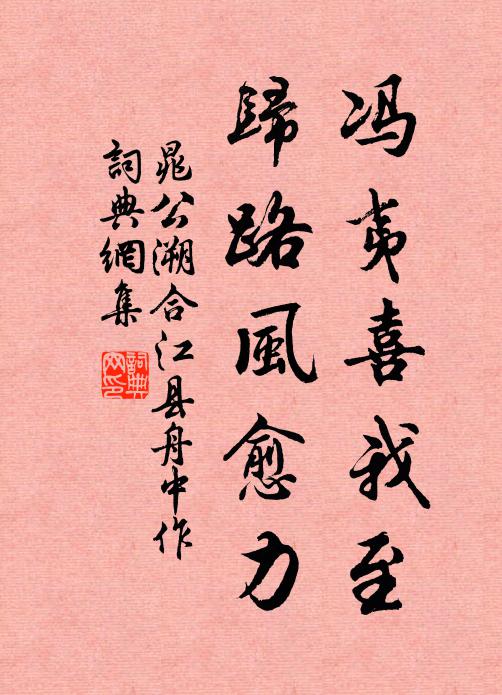 冯夷喜我至
歸路風愈力
晁公溯合江县舟中作
詞典網集
詞典网印